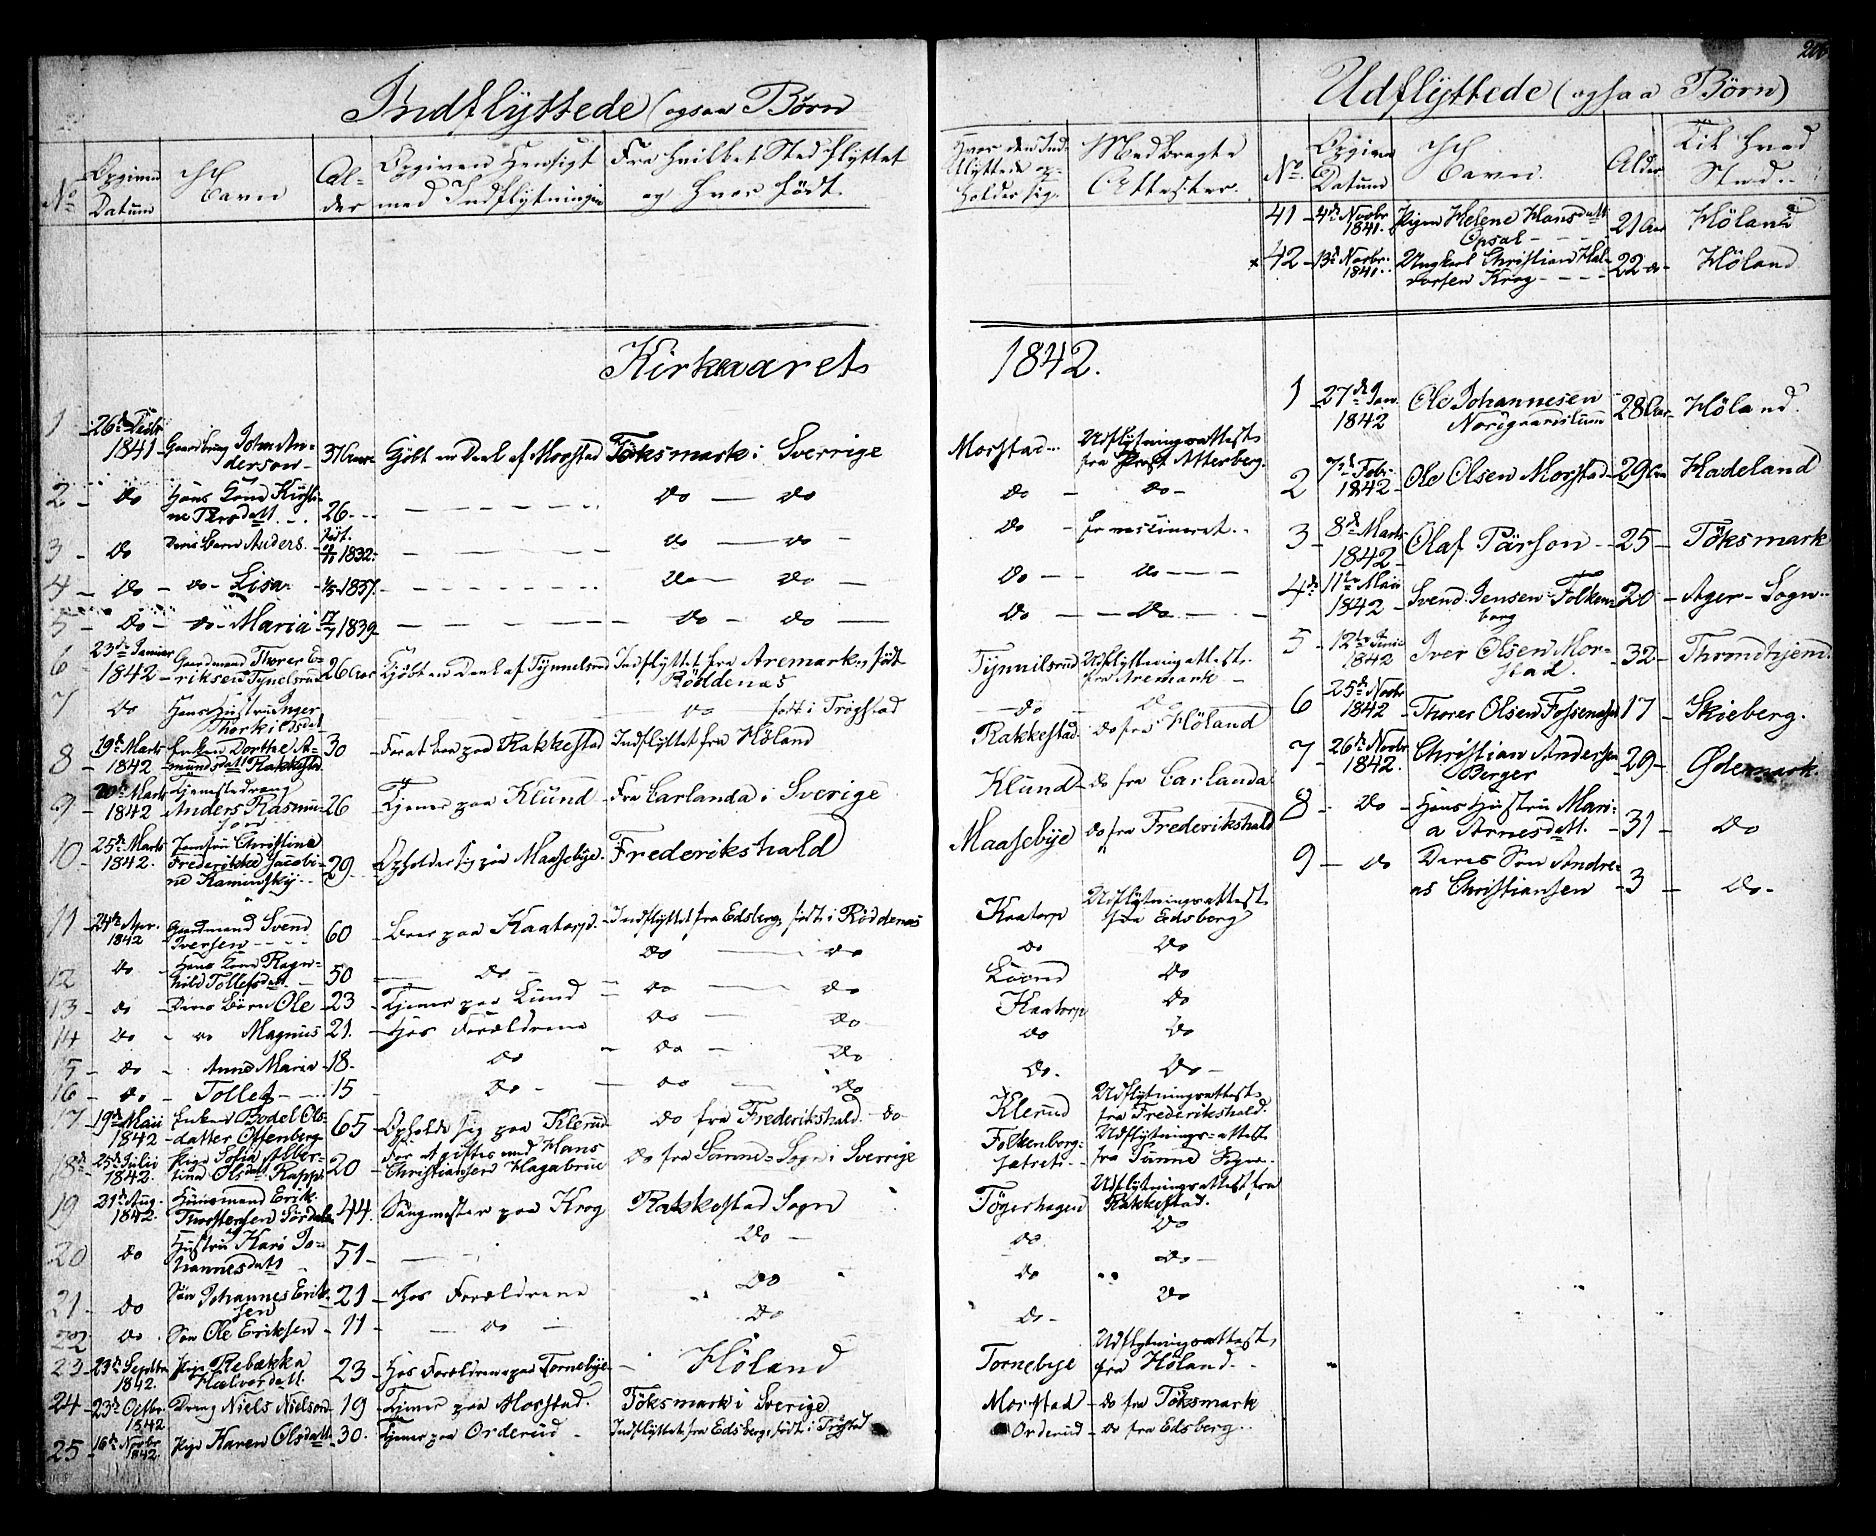 Indflyttede (ogsaa Børn
No
Opgiven Datum
Navn
Al-
der
Opgiven Hensigt
med Indflytningen
Fra hvilket Sted flyttet
og hvor født.
Hvor den Ind-
flyttede op-
holder sig.
Medbragte
Attester.
Kirkeaaret 1842.
1 26de Febr 1841 Gaardbrug John An-
derson 37 Aar Kjöbt en Deel af Morstad Töksmark i Sverrige Morstad Udflytningsattest
fra Prost Atterberg.
2 do Hans Kone Kirsti-
ne Persdatt. 26 do do do do
3 do Deres Barn Anders född. 1832 do do do Er vaccineret.
4 do do Lisa 1837 do do do do
5 do do Maria 1839 do do do do
6 23de Januar 1842 Gaardmand Thorer E-
riksen Tynelsrud 26 Aar Kjöbt en Deel af Tynnelsrud Indflyttet fra Aremark, født
Röddenæs Tynnilsrud Udflytningsattest
fra Aremark
7 do Hans Hustru Inger
Thorkildsdatt do født i Trögstad do do
8 19de Marts 1842 Enken Dorthe A-
mundsdatt Rakkestad 30 For at boe paa Rakkestad Indflyttet fra Höland Rakkestad do fra Höland
9 20de Marts 1842 Tjenestedreng
Anders Rasmu-
son 26 Tjener paa Klund Fra Carlanda i Sverige Klund do fra Carlanda
10 25de Marts 1842. Jomfru Christine
Frederikke Jacobi-
ne Kaminsky 29 Opholder sig paa Maasebye Frederikshald Maasebye do fra Frederikshald
11 24de Apr. 1842 Gaardmand Svend
Iversen 60 Boer paa Kaatorp Indflyttet fra Edsberg, født i Röddenæs Kaatorp Udflytningsattest
fra Edsberg
12 do Hans Kone Ragn-
hild Tollefsdatt 50 do do do do do
13 do Deres Børn Ole 23 Tjener paa Lund do do Lund do
14 do do Magnus 21. Hos Forældrene do do Kaatorp do
15 do Anne Maria 18 do do do do do
16 do Tollef 15 do do do do do
17 19de Maii 1842 Enken Bodel Ols-
datter Offenberg 65 Opholde sig paa Klerud do fra Frederikshald do Klerud Udflytningsattest
fra Frederikshald.
18 25de Julii 1842. Pige Sofia Alber-
tina Olsdatt Rapp 20 For at giftes med Hans
Christiansen Hagabrue do fra Sunne Sogn i Sverrige Folkenborg-
sætret Udflytnings-attest
fra Sunne Sogn
19 21de Aug. 1842. Huusmand Erik
Thorstensen Sördalen 44. Saugmester paa Krog Rakkestad Sogn Tögerhagen Udflytningsattest fra
Rakkestad.
20 do Hustru Kari Jo-
hannesdatt 51 do do do
21 do Søn Johannes Erik-
sen 21 Hos Forældrene do do do
22 do Søn Ole Eriksen 11 do do do do
23 23de Septbr 1842. Pige Rebækka
Halvordatt. 23 Hos Forældrene paa Tornebye Höland Tornebye Udflytningsattest
fra Höland
24 23de Octbr. 1842 Dreng Niels Nielson 19 Tjener paa Morstad. Töksmark i Sverige Morstad do fra Töksmark
25 16de Novbr 1842. Pige Karen Olsdatt 30. Tjener paa Orderud Indflyttet fra Edsberg, født i Trögstad Orderud do fra Edsberg
206
Udflyttede (ogsaa Børn)
No.
Opgiven
Datum
Navn.
Alder
Til hvad
Sted.
41 4de Novbr 1841. Pigen Helene Hansdatt
Opsal 21 Aar Höland
42 13de Novbr. 1841. Ungkarl Christian Hal-
vorsen Krog 22 do Höland
1 27de Jan. 1842 Ole Johannesen
28 Aar Höland.
2 7de Febr. 1842 Ole Olsen Morstad 29 Aar Hadeland
3 8de Marts 1842 Olaf Pärson 25 Töksmark
4de 11te Maii 1842 Svend Jensen Folken-
borg 20 Ager-Sogn
5 12te Junii 1842 Iver Olsen Mor-
stad. 32 Throndhjem.
6 25de Novbr 1842 Thorer Olsen Fossenæs 17 Skieberg.
7 26de Novbr. 1842. Christian Andersen
Berger 29 Ødemark.
8 do Hans Hustru Mari-
a Arnesdatt. 31 do
9 do Deres Søn Andre-
as Christiansen 3 do